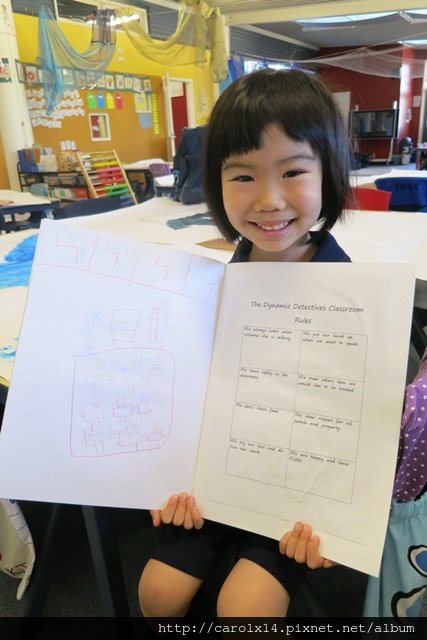 TOBY
The Dynamic Detectives Classroom
Rules
We always listen when
someone else is talking.
We put our hand up
when we want to speak.
We move safely in the
classroom.
We treat others how we
would like to be treated.
We don't share food.
We show respect for all
people and property.
We try our best and do
five star work.
We are happy and have
FUN!
http://carolx14.pixnet.net/album